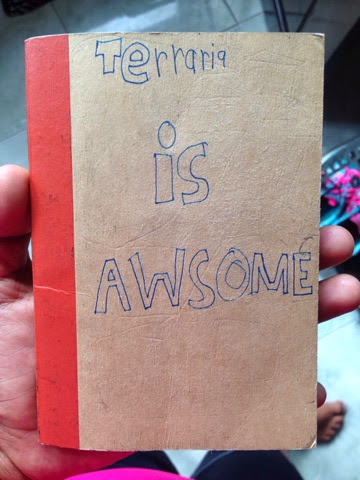 Terraria
is
AWSOME